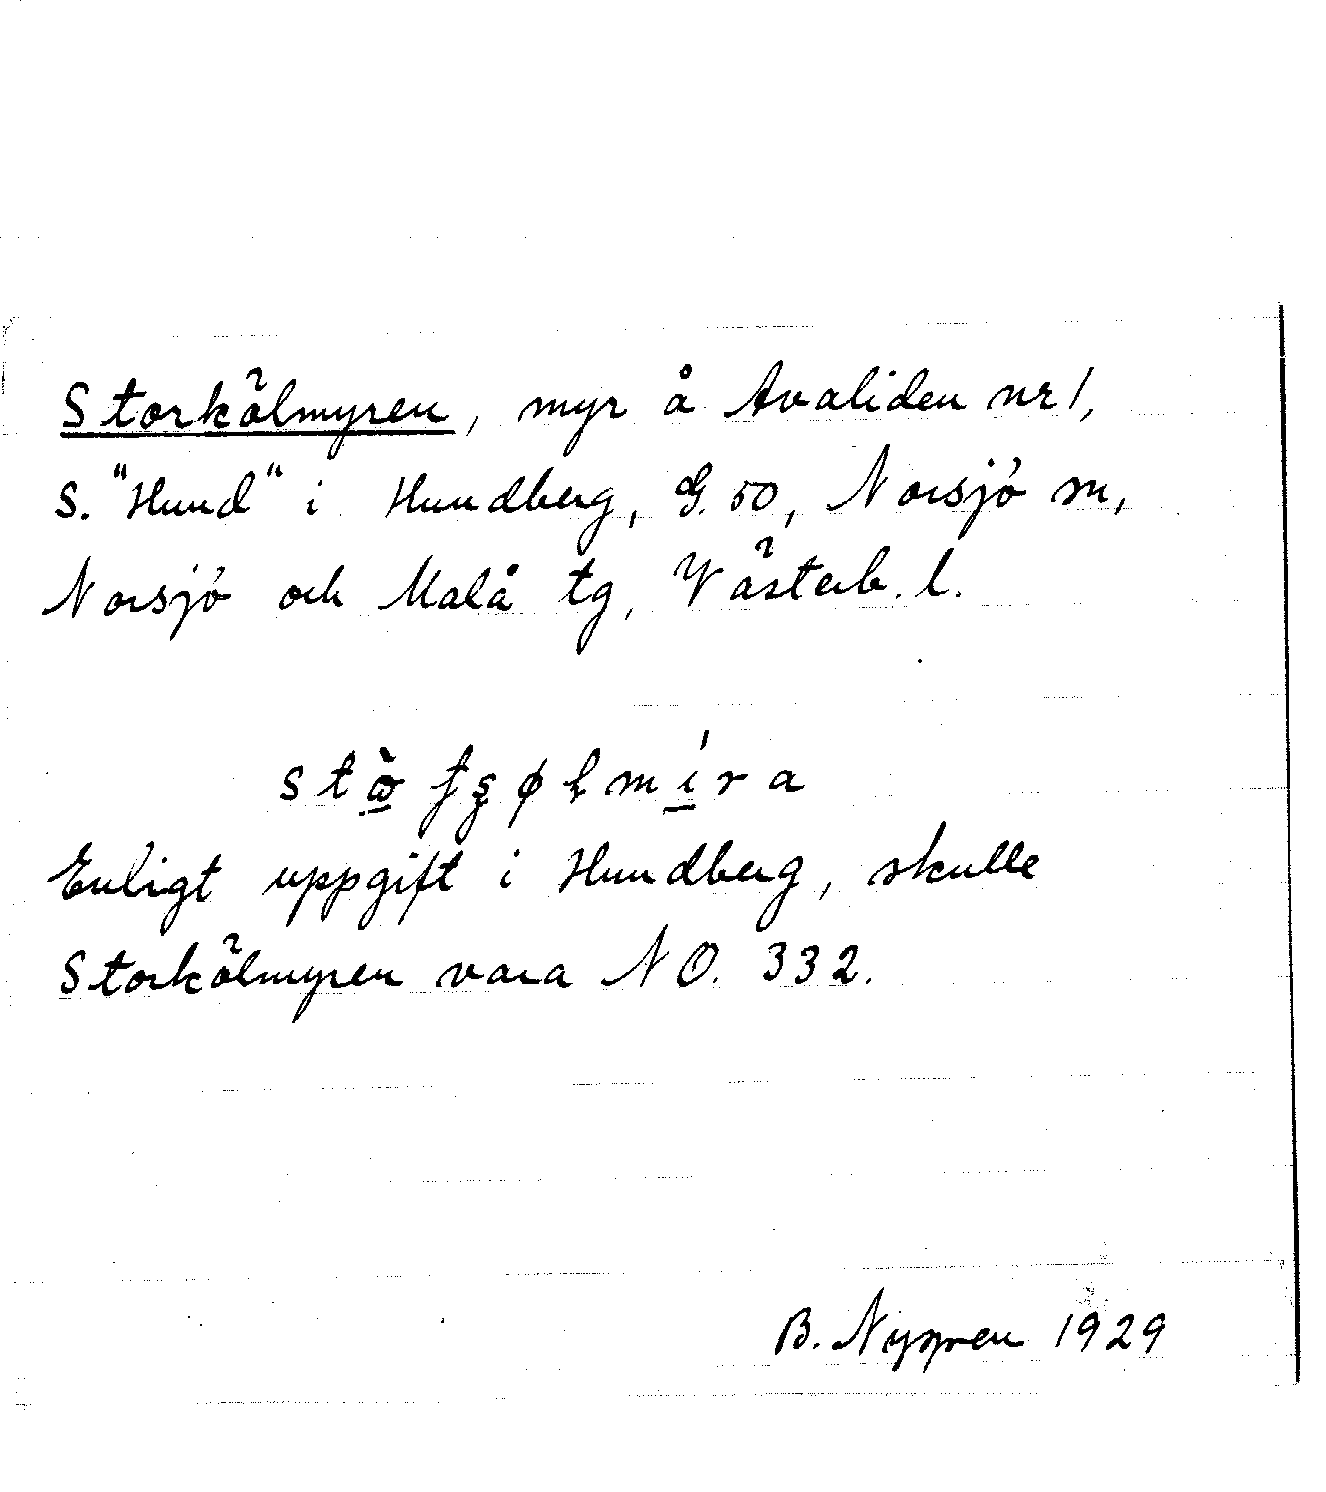 Storkölmyren, myr å Avaliden nr 1,
S. "Hund" i Hundberg, G. 50, Norsjö sn,
Norsjö och Malå tg, Västerb. l.
Enligt uppgift i Hundberg, skulle
Storkölmyren vara NO. 332.
B. 1929